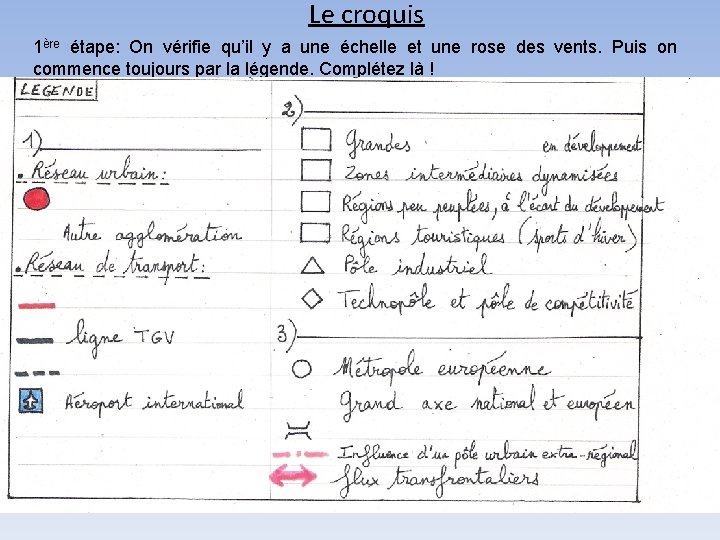 Le croquis
1ère étape: On vérifie qu’il y a une échelle et une rose des vents. Puis on
commence toujours par la légende. Complétez là !
LEGENDE
1)
. Réseau urbain :
Autre agglomération
. Réseau de transport :
ligne TGV
Aéroport international
2)
Grandes en développement
Zones intermédiaires dynamisées
Régions peu peuplées, à l'écart du développement
Régions touristiques (sports d'hiver)
Pôle industriel
Technopôle et pôle de compétitivité
3)
Métropole européenne
Grand axe national et européen
Influence d'un pôle urbain extra-régional
flux transfrontaliers